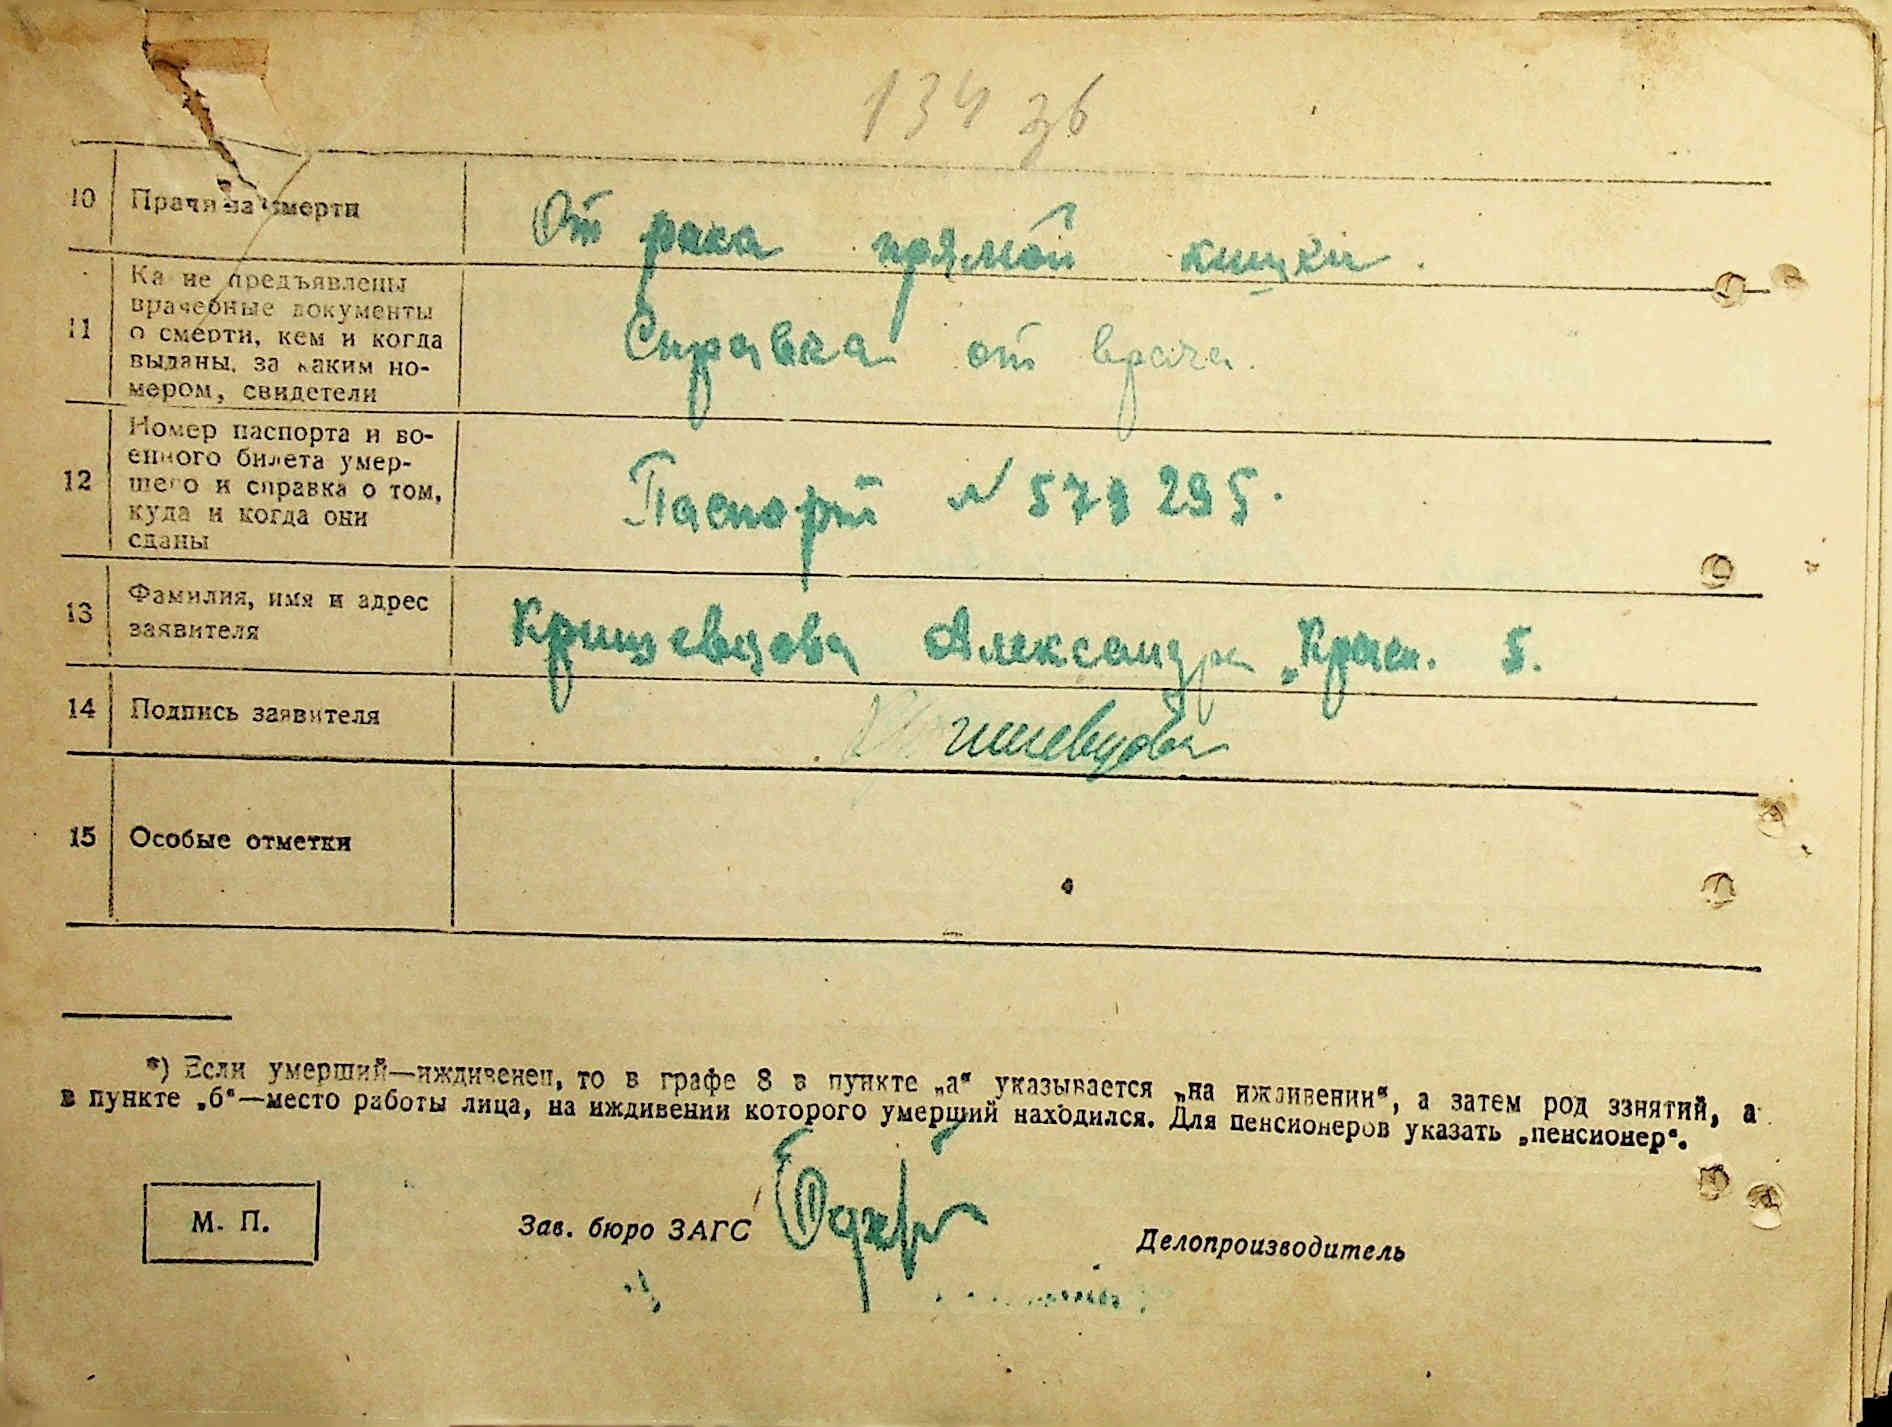 134 зб
10 Причина смерти От рака прямой кишки.
11 Какие предъявлены
врачебные документы
о смерти, кем и когда
выданы, за каким но-
мером, свидетели
Справка от врача.
12 Номер паспорта и во-
енного билета умер-
шего и справка о том,
куда и когда они
сданы
Паспорт № 579 295.
13 Фамилия, имя и адрес
заявителя
Кришевцова Александра „Красн. 5.
14 Подпись заявителя Кришевцова
15 Особые отметки
*) Если умерший—иждивенец, то в графе 8 в пункте „а“ указывается „на иждивении“, а затем род занятий, а
в пункте „б“—место работы лица, на иждивении которого умерший находился. Для пенсионеров указать „пенсионер“.
М. П.
Зав. бюро ЗАГС
Делопроизводитель